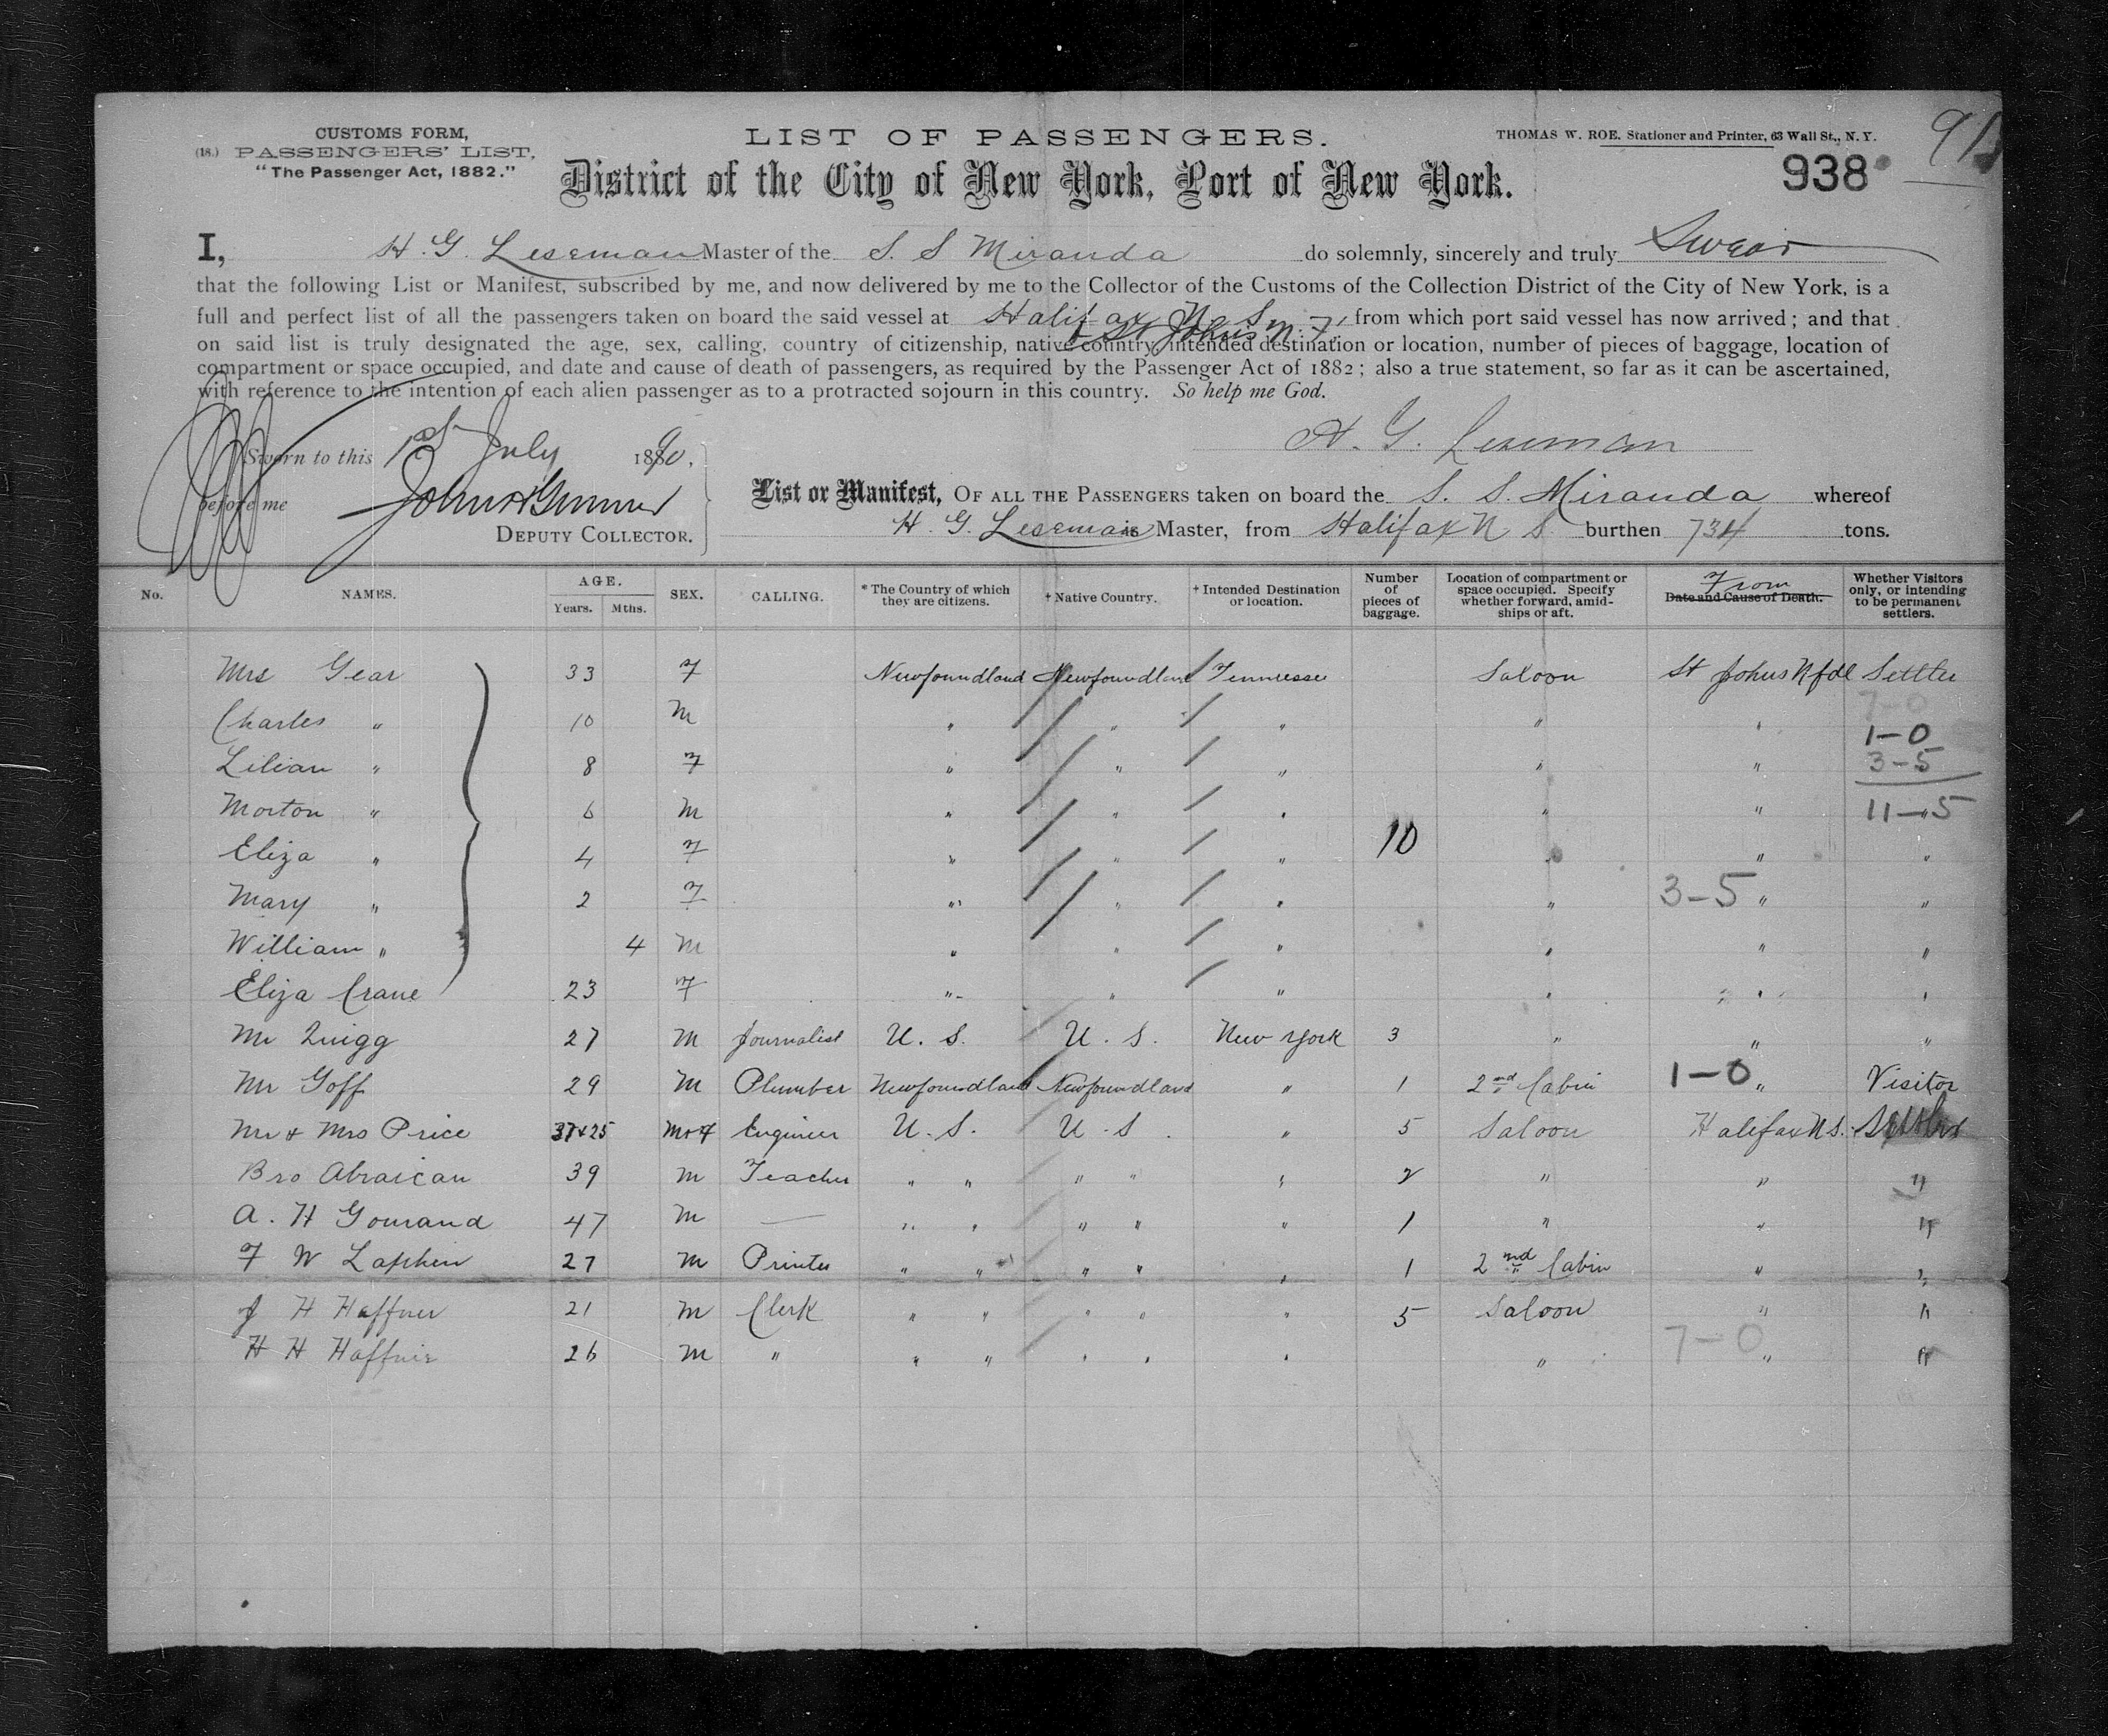 CUSTOMS FORM,
(18.) PASSENGERS' LIST,
"The Passenger Act, 1882."
LIST OF PASSENGERS.
THOMAS W. ROE. Stationer and Printer, 63 Wall St., N. Y.
District of the City of New York, Port of New York.
938
I, H. G. Leseman Master of the S. S Miranda do solemnly, sincerely and truly Swear
that the following List or Manifest, subscribed by me, and now delivered by me to the Collector of the Customs of the Collection District of the City of New York, is a
full and perfect list of all the passengers taken on board the said vessel at Halifax N. S. from which port said vessel has now arrived; and that
& St Johns N. F.
on said list is truly designated the age, sex, calling, country of citizenship, native country, intended destination or location, number of pieces of baggage, location of
compartment or space occupied, and date and cause of death of passengers, as required by the Passenger Act of 1882; also a true statement, so far as it can be ascertained,
with reference to the intention of each alien passenger as to a protracted sojourn in this country. So help me God.
H. G. Leseman
Sworn to this 1st July 1890.
before me
DEPUTY COLLECTOR.
List or Manifest, OF ALL THE PASSENGERS taken on board the S. S. Miranda whereof
H. G. Leseman is Master, from Halifax N S burthen 734 tons.
No. NAMES. AGE. Years. Mths. SEX. CALLING. * The Country of which they are citizens. † Native Country. † Intended Destination or location. Number of pieces of baggage. Location of compartment or space occupied. Specify whether forward, amidships or aft. From Date and Cause of Death. Whether Visitors only, or intending to be permanent settlers.
Mrs Gear 33 F Newfoundland Newfoundland Tennessee Saloon St Johns Nfdl Settler
7-0
Charles " 10 M " " " " " 1-0
Lilian " 8 F " " " " " 3-5
Morton " 6 M " " " " " 11-5 "
Eliza " 4 F " " " 10 " " "
Mary " 2 F " " " " 3-5 " "
William " 4 M " " " " " "
Eliza Crane 23 F " " " " " "
Mr Quigg 27 M Journalist U. S. U. S. New York 3 " " "
Mr Goff 29 M Plumber Newfoundland Newfoundland " 1 2nd Cabin 1-0 " Visitor
Mr & Mrs Price 37+25 M+F Engineer U. S. U. S. " 5 Saloon Halifax N S.
Bro Abraican 39 M Teacher " " " " " 2 " " "
A. H Gourand 47 M — " " " " " 1 " " "
F W Laphen 27 M Printer " " " " " 1 2nd Cabin " "
J H Haffner 21 M Clerk " " " " " 5 Saloon " "
H H Haffner 26 M " " " " " " " 7-0 " "